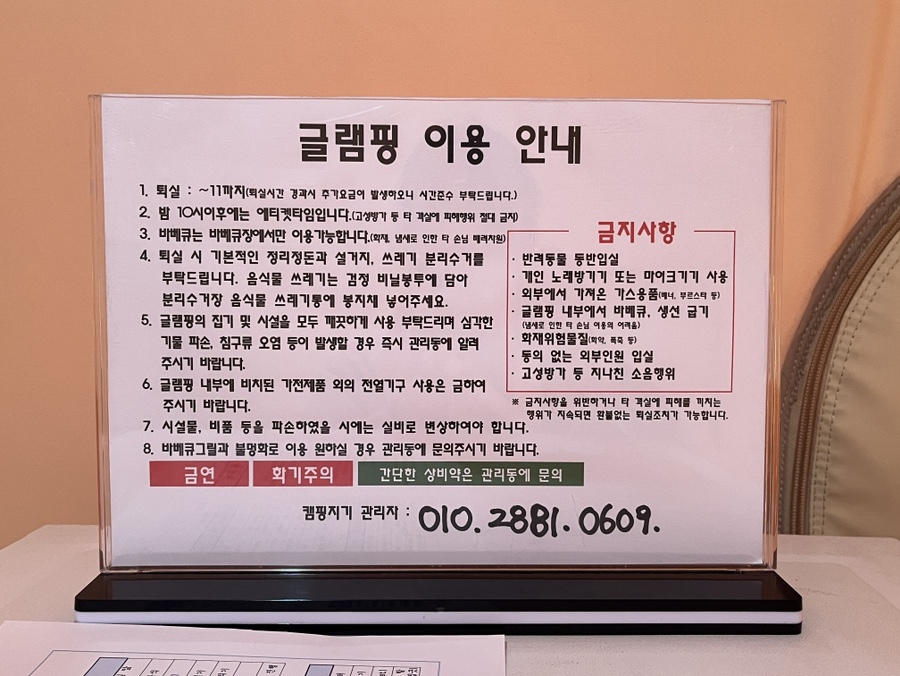 글램핑 이용 안내
1. 퇴실 : ~11까지(퇴실시간 경과시 추가요금이 발생하오니 시간준수 부탁드립니다.)
2. 밤 10시이후에는 에티켓타임입니다.(고성방가 등 타 객실에 피해행위 절대 금지)
3. 바베큐는 바베큐장에서만 이용가능합니다.(화재, 냄새로 인한 타 손님 배려차원)
4. 퇴실 시 기본적인 정리정돈과 설거지, 쓰레기 분리수거를
부탁드립니다. 음식물 쓰레기는 검정 비닐봉투에 담아
분리수거장 음식물 쓰레기통에 봉지채 넣어주세요.
5. 글램핑의 집기 및 시설을 모두 깨끗하게 사용 부탁드리며 심각한
기물 파손, 침구류 오염 등이 발생할 경우 즉시 관리동에 알려
주시기 바랍니다.
6. 글램핑 내부에 비치된 가전제품 외의 전열기구 사용은 금하여
주시기 바랍니다.
7. 시설물, 비품 등을 파손하였을 시에는 실비로 변상하여야 합니다.
8. 바베큐그릴과 불멍화로 이용 원하실 경우 관리동에 문의주시기 바랍니다.
금지사항
· 반려동물 동반입실
· 개인 노래방기기 또는 마이크기기 사용
· 외부에서 가져온 가스용품(버너, 부르스타 등)
· 글램핑 내부에서 바베큐, 생선 굽기
(냄새로 인한 타 손님 이용의 어려움)
· 화재위험물질(화약, 폭죽 등)
· 동의 없는 외부인원 입실
· 고성방가 등 지나친 소음행위
※ 금지사항을 위반하거나 타 객실에 피해를 끼치는
행위가 지속되면 환불없는 퇴실조치가 가능합니다.
금연 화기주의 간단한 상비약은 관리동에 문의
캠핑지기 관리자 : 010. 2881. 0609.